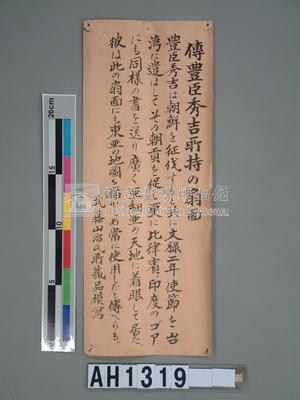 傳豊臣秀吉所持の扇面
豊臣秀吉は朝鮮を征伐すると共に文禄二年使節を台
湾に遣はしてその朝貢を促し更に比律賓、印度のゴア
にも同様の書を送り廣く亜細亜の天地に着眼して居た、
彼は此の扇面にも東亜の地圖を畫かしめ常に使用したと傳へらる。
武藤山治氏所蔵品模寫
AH1319
20cm
15
10
5